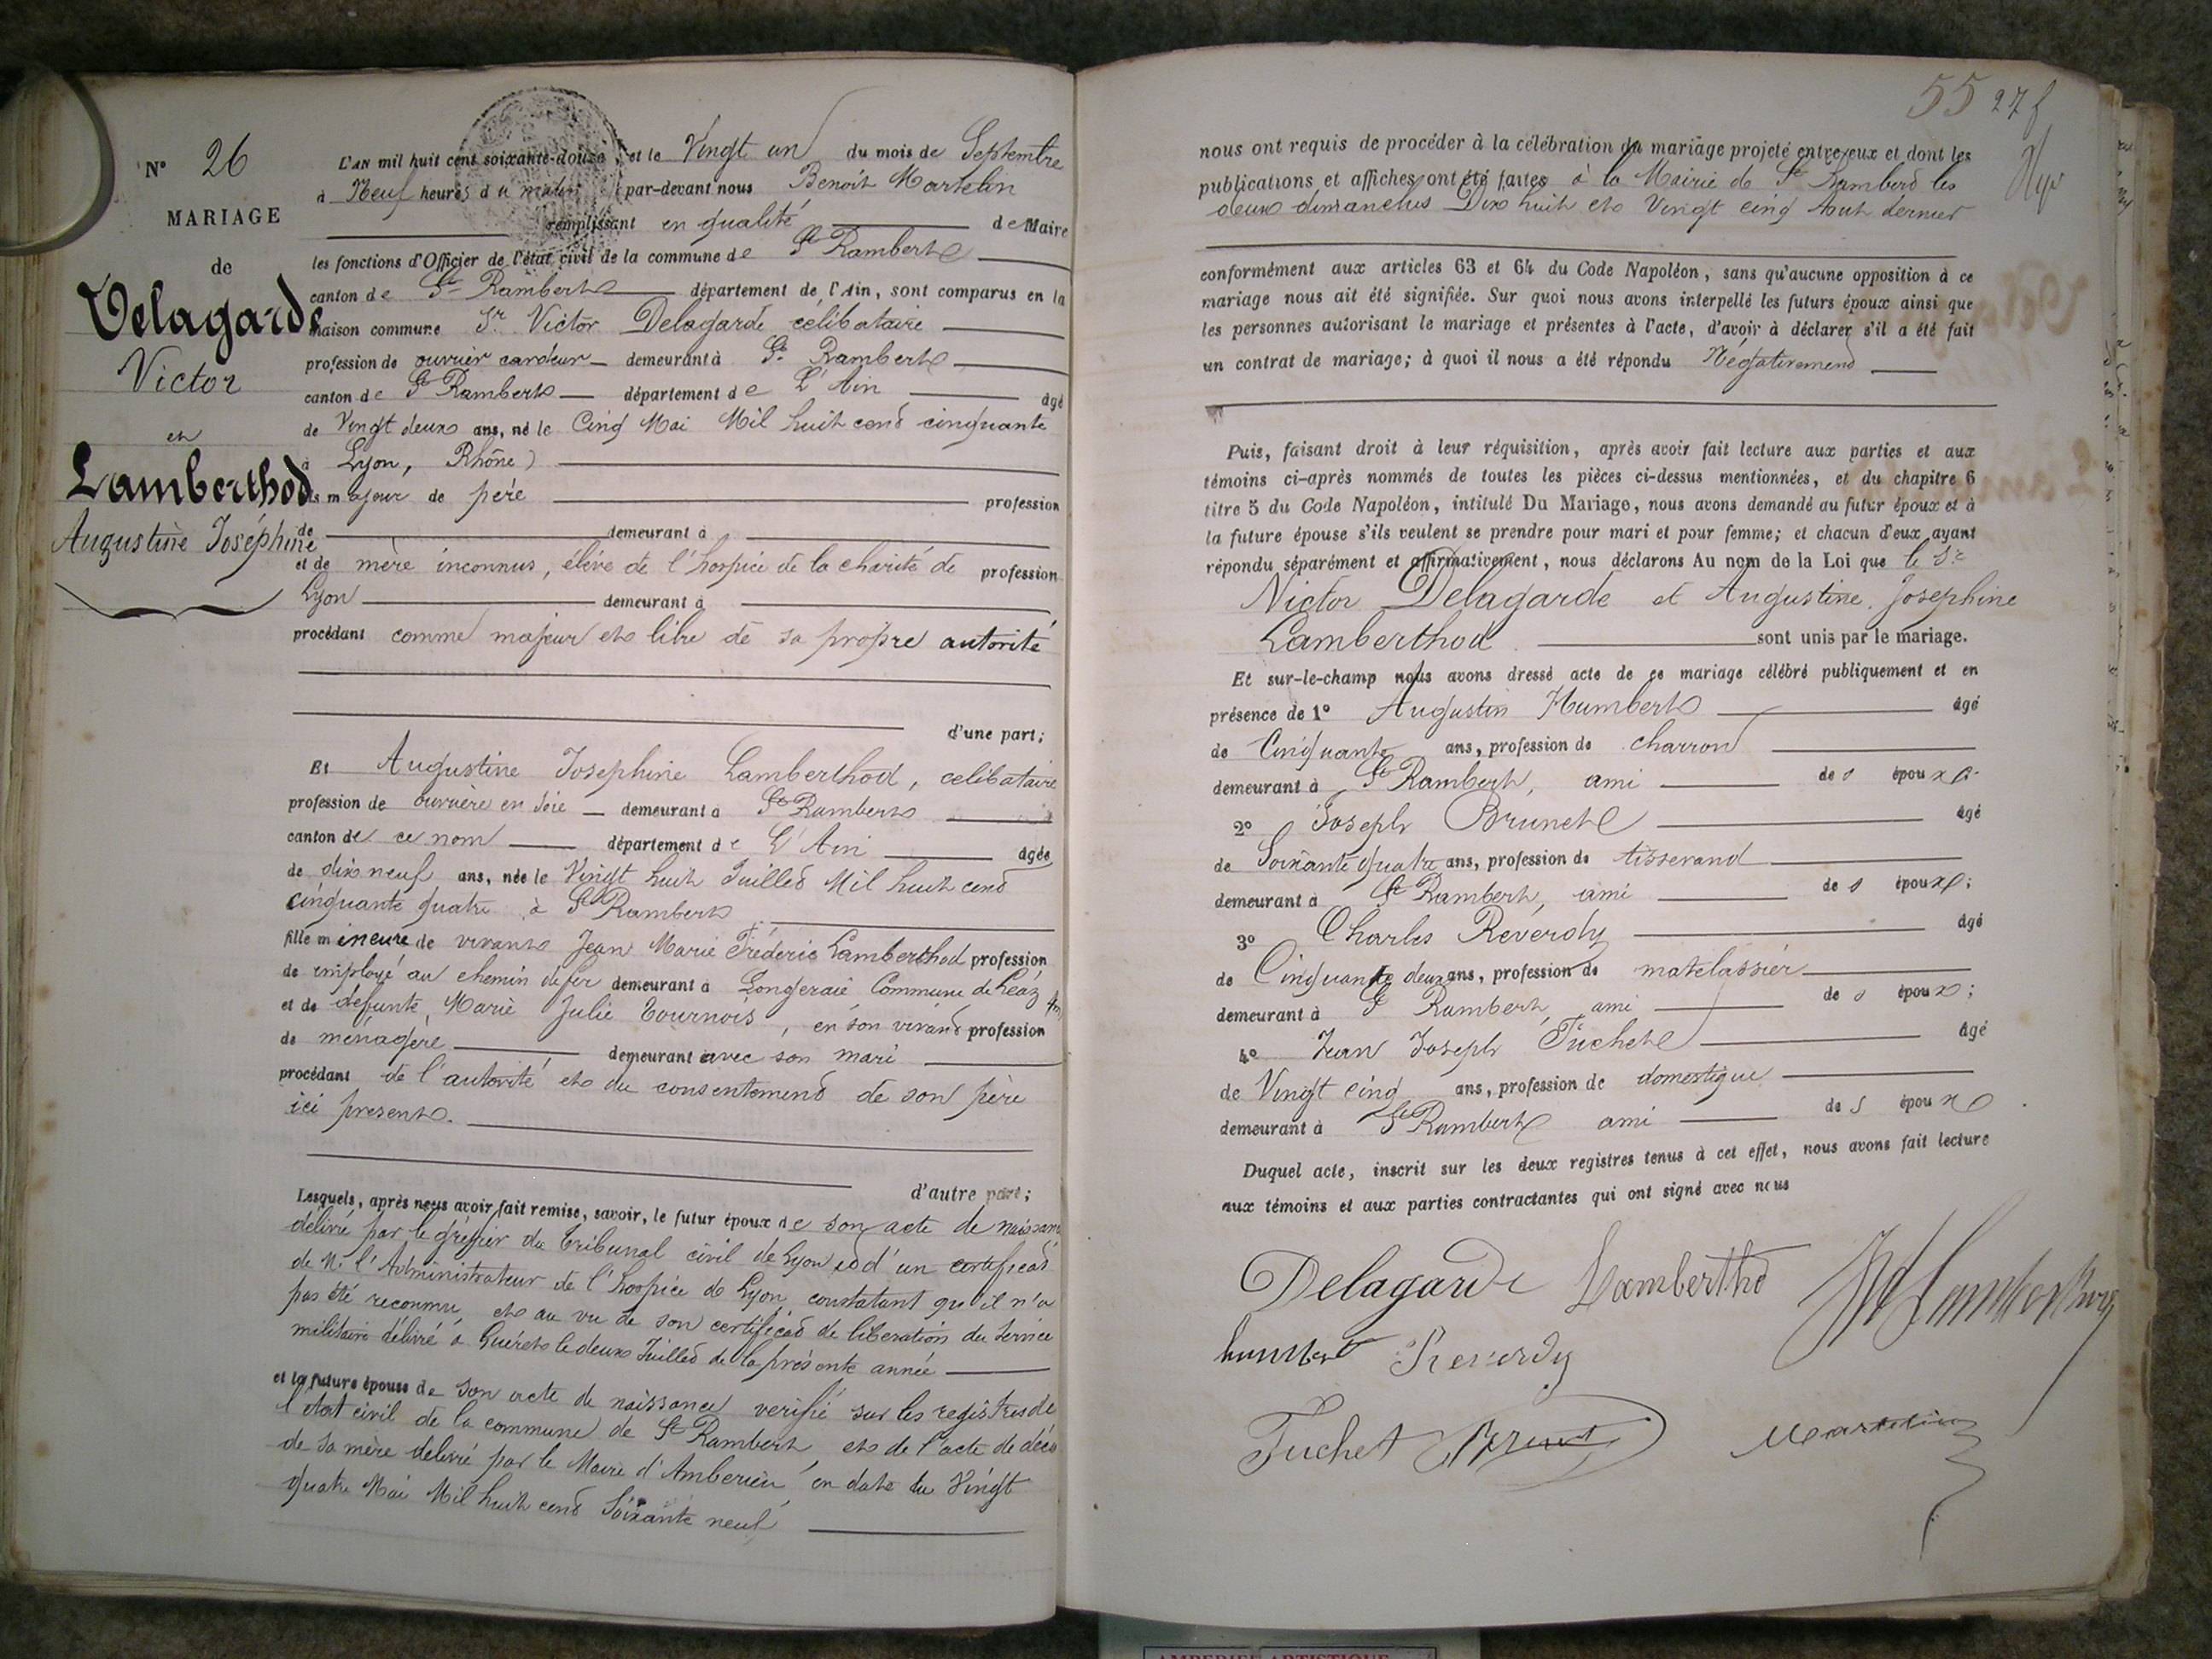 N° 26
MARIAGE
de
Delagarde
Victor
et
Lamberthod
Augustine Joséphine
L'AN mil huit cent soixante-douze, et le Vingt un du mois de Septembre
à Neuf heures du matin par-devant nous Benoit Martelin
remplissant en qualité de Maire
les fonctions d'Officier de l'état civil de la commune de St Rambert
canton de St Rambert département de l'Ain, sont comparus en la
maison commune Sr Victor Delagarde célibataire
profession de ouvrier cardeur demeurant à St Rambert
canton de St Rambert département de L'Ain âgé
de Vingt deux ans, né le Cinq Mai Mil huit cent cinquante
à Lyon, Rhône)
fils majeur de père profession
de demeurant à
et de mère inconnus, élève de l'hospice de la charité de profession
Lyon demeurant à
procédant comme majeur et libre de sa propre autorité
d'une part;
Et Augustine Josephine Lamberthod, celibataire
profession de ouvrière en soie demeurant à St Rambert
canton de ce nom département de L'Ain âgée
de dix neuf ans, née le Vingt huit Juillet Mil huit cent
cinquante quatre à St Rambert
fille mineure de vivant Jean Marie Fréderic Lamberthod profession
de employé au chemin de fer demeurant à Longeraie Commune de Léaz Ain
et de défunte Marie Julie Tournois, en son vivant profession
de ménagère demeurant avec son mari
procédant de l'autorité et du consentement de son père
ici present.
d'autre part;
Lesquels, après nous avoir fait remise, savoir, le futur époux de son acte de naissance
délivré par le greffier du Tribunal civil de Lyon et d'un certificat
de Mr l'Administrateur de l'hospice de Lyon constatant qu'il n'a
pas été reconnu, et au vu de son certificat de liberation du service
militaire délivré à Guéret le deux Juillet de la présente année
et la future épouse de son acte de naissance verifié sur les registres de
l'état civil de la commune de St Rambert, et de l'acte de décès
de sa mère delivré par le Maire d'Amberieu en date du Vingt
quatre Mai Mil huit cent Soixante neuf
55 27 f
nous ont requis de procéder à la célébration du mariage projeté entre eux et dont les
publications et affiches ont été faites à la Mairie de St Rambert les
deux dimanches Dix huit et Vingt cinq Aout dernier
conformément aux articles 63 et 64 du Code Napoléon, sans qu'aucune opposition à ce
mariage nous ait été signifiée. Sur quoi nous avons interpellé les futurs époux ainsi que
les personnes autorisant le mariage et présentes à l'acte, d'avoir à déclarer s'il a été fait
un contrat de mariage; à quoi il nous a été répondu Négativement
Puis, faisant droit à leur réquisition, après avoir fait lecture aux parties et aux
témoins ci-après nommés de toutes les pièces ci-dessus mentionnées, et du chapitre 6
titre 5 du Code Napoléon, intitulé Du Mariage, nous avons demandé au futur époux et à
la future épouse s'ils veulent se prendre pour mari et pour femme; et chacun d'eux ayant
répondu séparément et affirmativement, nous déclarons Au nom de la Loi que le Sr
Victor Delagarde et Augustine Josephine
Lamberthod sont unis par le mariage.
Et sur-le-champ nous avons dressé acte de ce mariage célébré publiquement et en
présence de 1° Augustin Humbert âgé
de Cinquante ans, profession de charron
demeurant à St Rambert, ami des époux
2° Joseph Brunet âgé
de Soixante quatre ans, profession de tisserand
demeurant à St Rambert, ami des époux;
3° Charles Reverdy âgé
de Cinquante deux ans, profession de matelassier
demeurant à St Rambert, ami des époux;
4° Jean Joseph Tuchet âgé
de Vingt cinq ans, profession de domestique
demeurant à St Rambert ami des époux
Duquel acte, inscrit sur les deux registres tenus à cet effet, nous avons fait lecture
aux témoins et aux parties contractantes qui ont signé avec nous
Delagarde Lamberthod
humbert Reverdy
Tuchet Brunet Martelin
AMBERIEU ARTISTIQUE